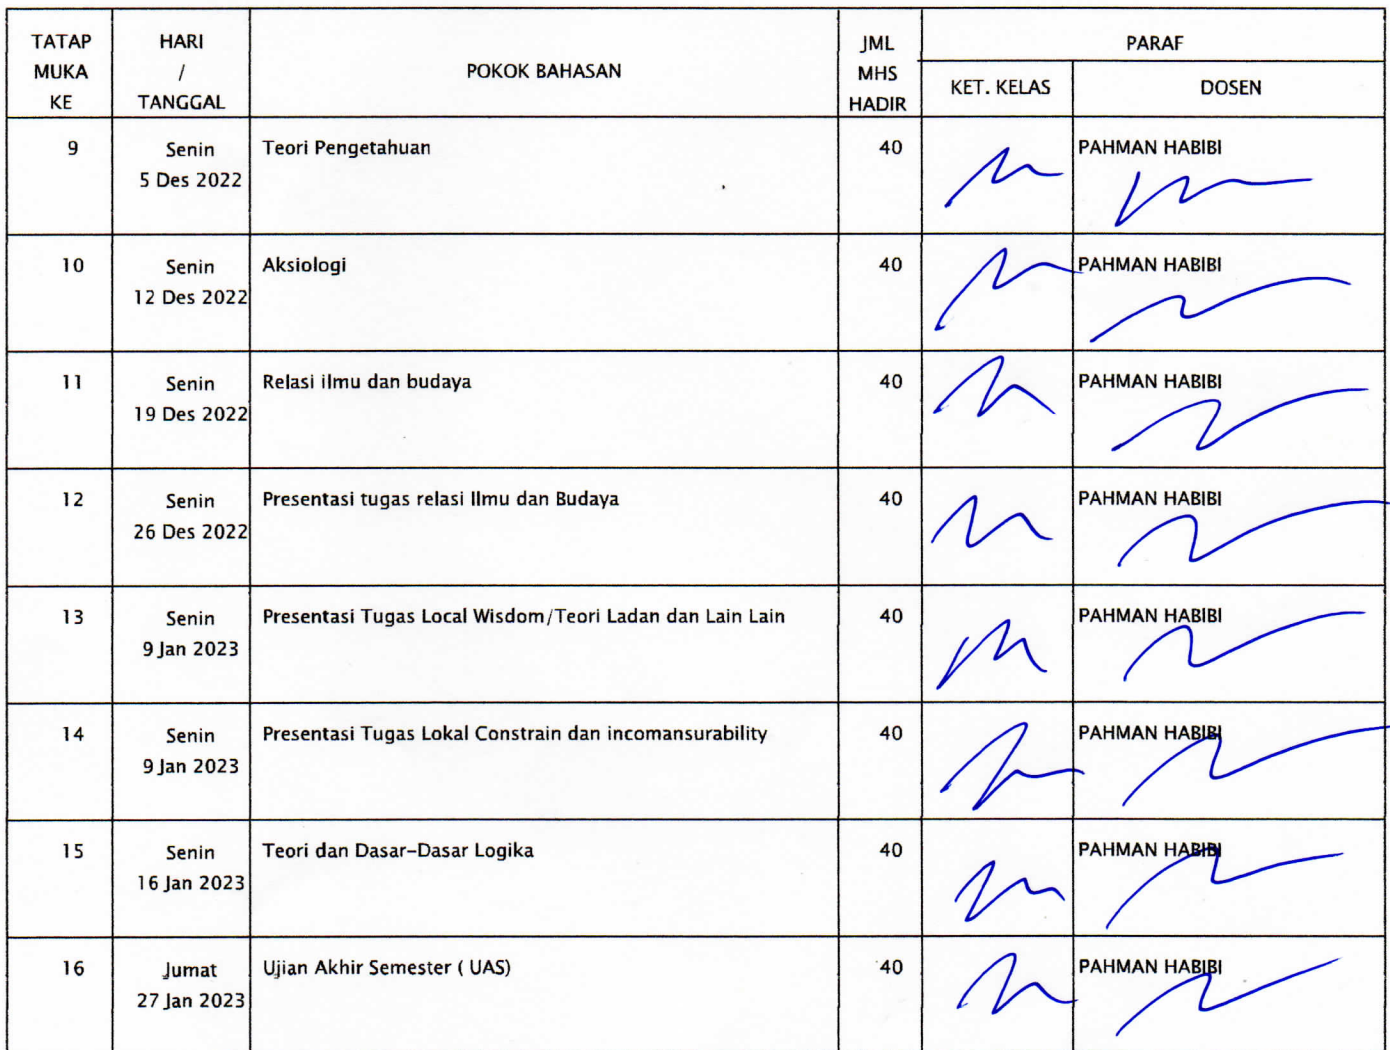 TATAP MUKA KE
HARI / TANGGAL
POKOK BAHASAN
JML MHS HADIR
PARAF
KET. KELAS
DOSEN
9
Senin
5 Des 2022
Teori Pengetahuan
40
PAHMAN HABIBI
10
Senin
12 Des 2022
Aksiologi
40
PAHMAN HABIBI
11
Senin
19 Des 2022
Relasi ilmu dan budaya
40
PAHMAN HABIBI
12
Senin
26 Des 2022
Presentasi tugas relasi Ilmu dan Budaya
40
PAHMAN HABIBI
13
Senin
9 Jan 2023
Presentasi Tugas Local Wisdom/Teori Ladan dan Lain Lain
40
PAHMAN HABIBI
14
Senin
9 Jan 2023
Presentasi Tugas Lokal Constrain dan incomansurability
40
PAHMAN HABIBI
15
Senin
16 Jan 2023
Teori dan Dasar-Dasar Logika
40
PAHMAN HABIBI
16
Jumat
27 Jan 2023
Ujian Akhir Semester ( UAS)
40
PAHMAN HABIBI